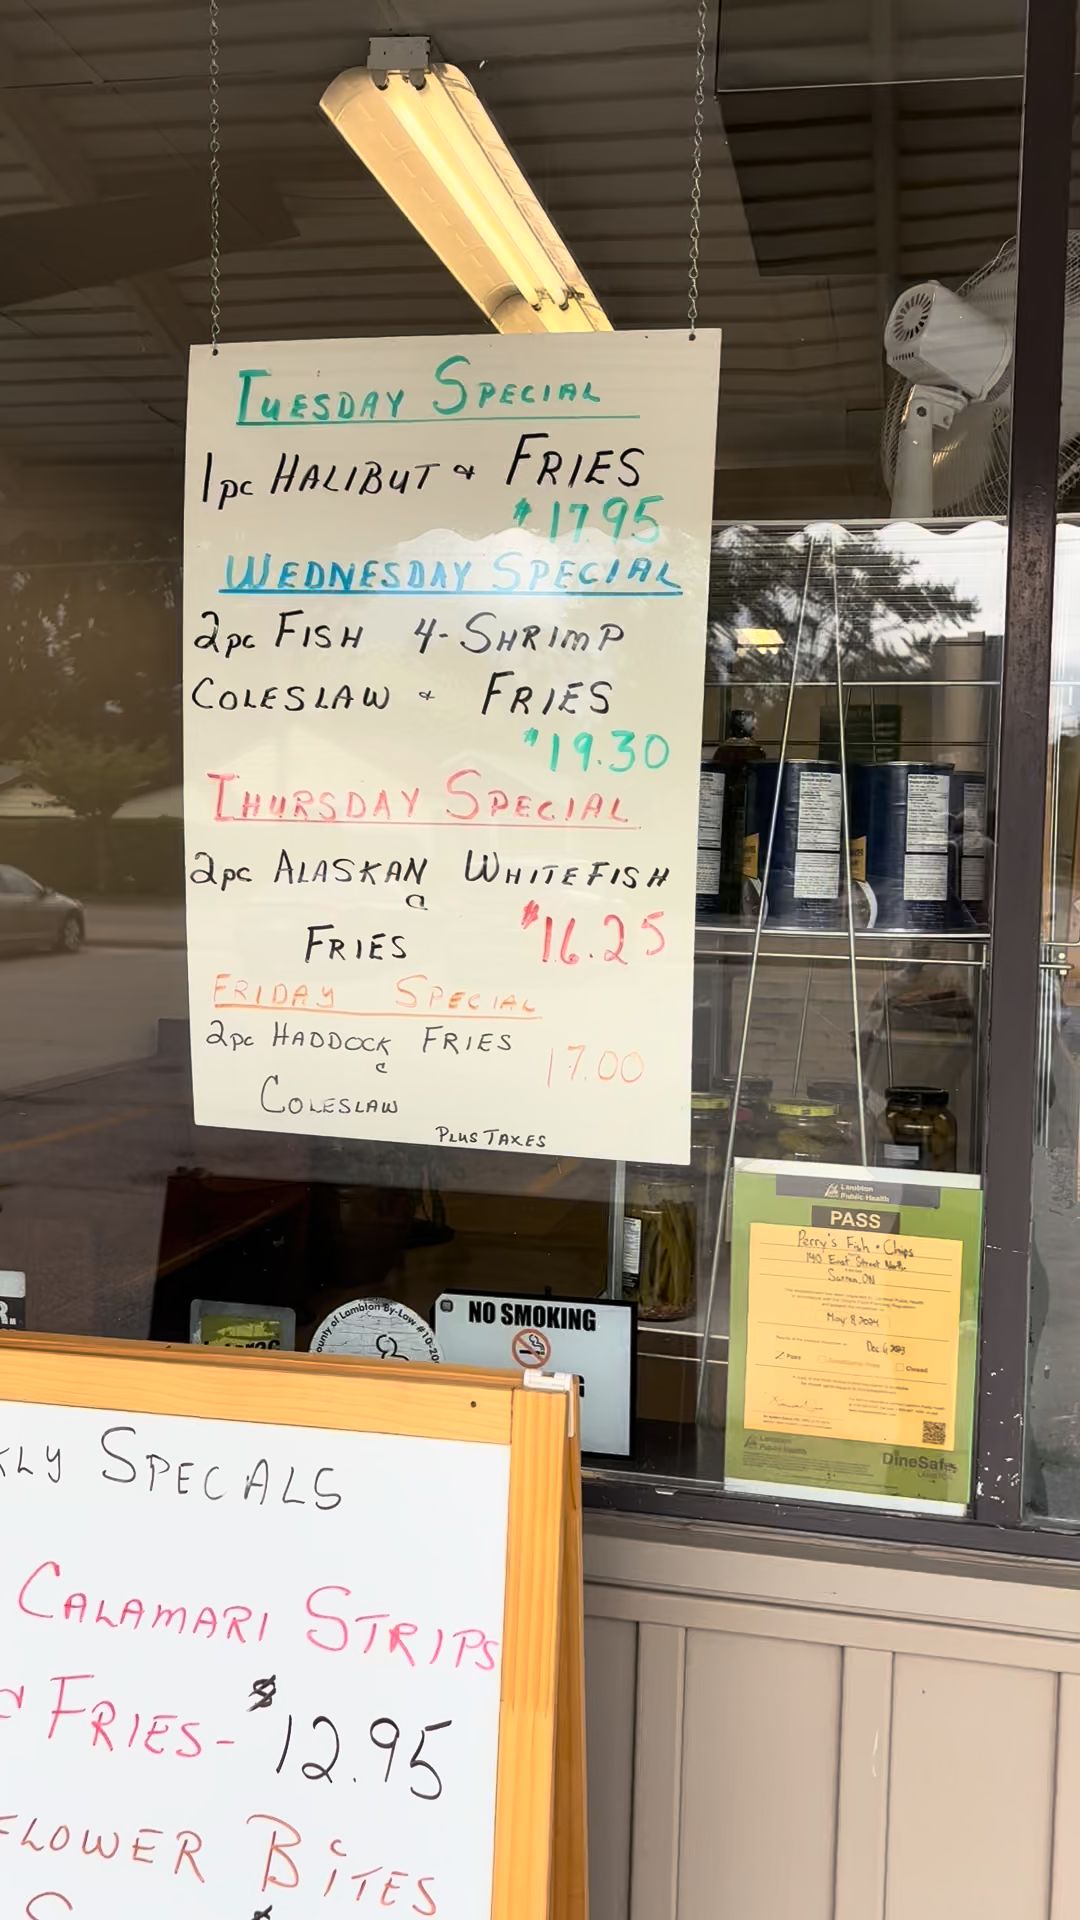 TUESDAY SPECIAL
1pc HALIBUT & FRIES
$17.95
WEDNESDAY SPECIAL
2pc FISH 4-SHRIMP
COLESLAW & FRIES
$19.30
THURSDAY SPECIAL
2pc ALASKAN WHITEFISH
&
FRIES $16.25
FRIDAY SPECIAL
2pc HADDOCK FRIES 17.00
&
COLESLAW
PLUS TAXES
Lambton
Public Health
PASS
Perry's Fish & Chips
140 East Street North
Sarnia, ON
May 8, 2024
Dec 6, 2023
Pass
Closed
Lambton
Public Health
DineSafe
ounty of Lambton By-Law #10-20
NO SMOKING
KLY SPECALS
CALAMARI STRIPS
& FRIES- $12.95
FLOWER BITES